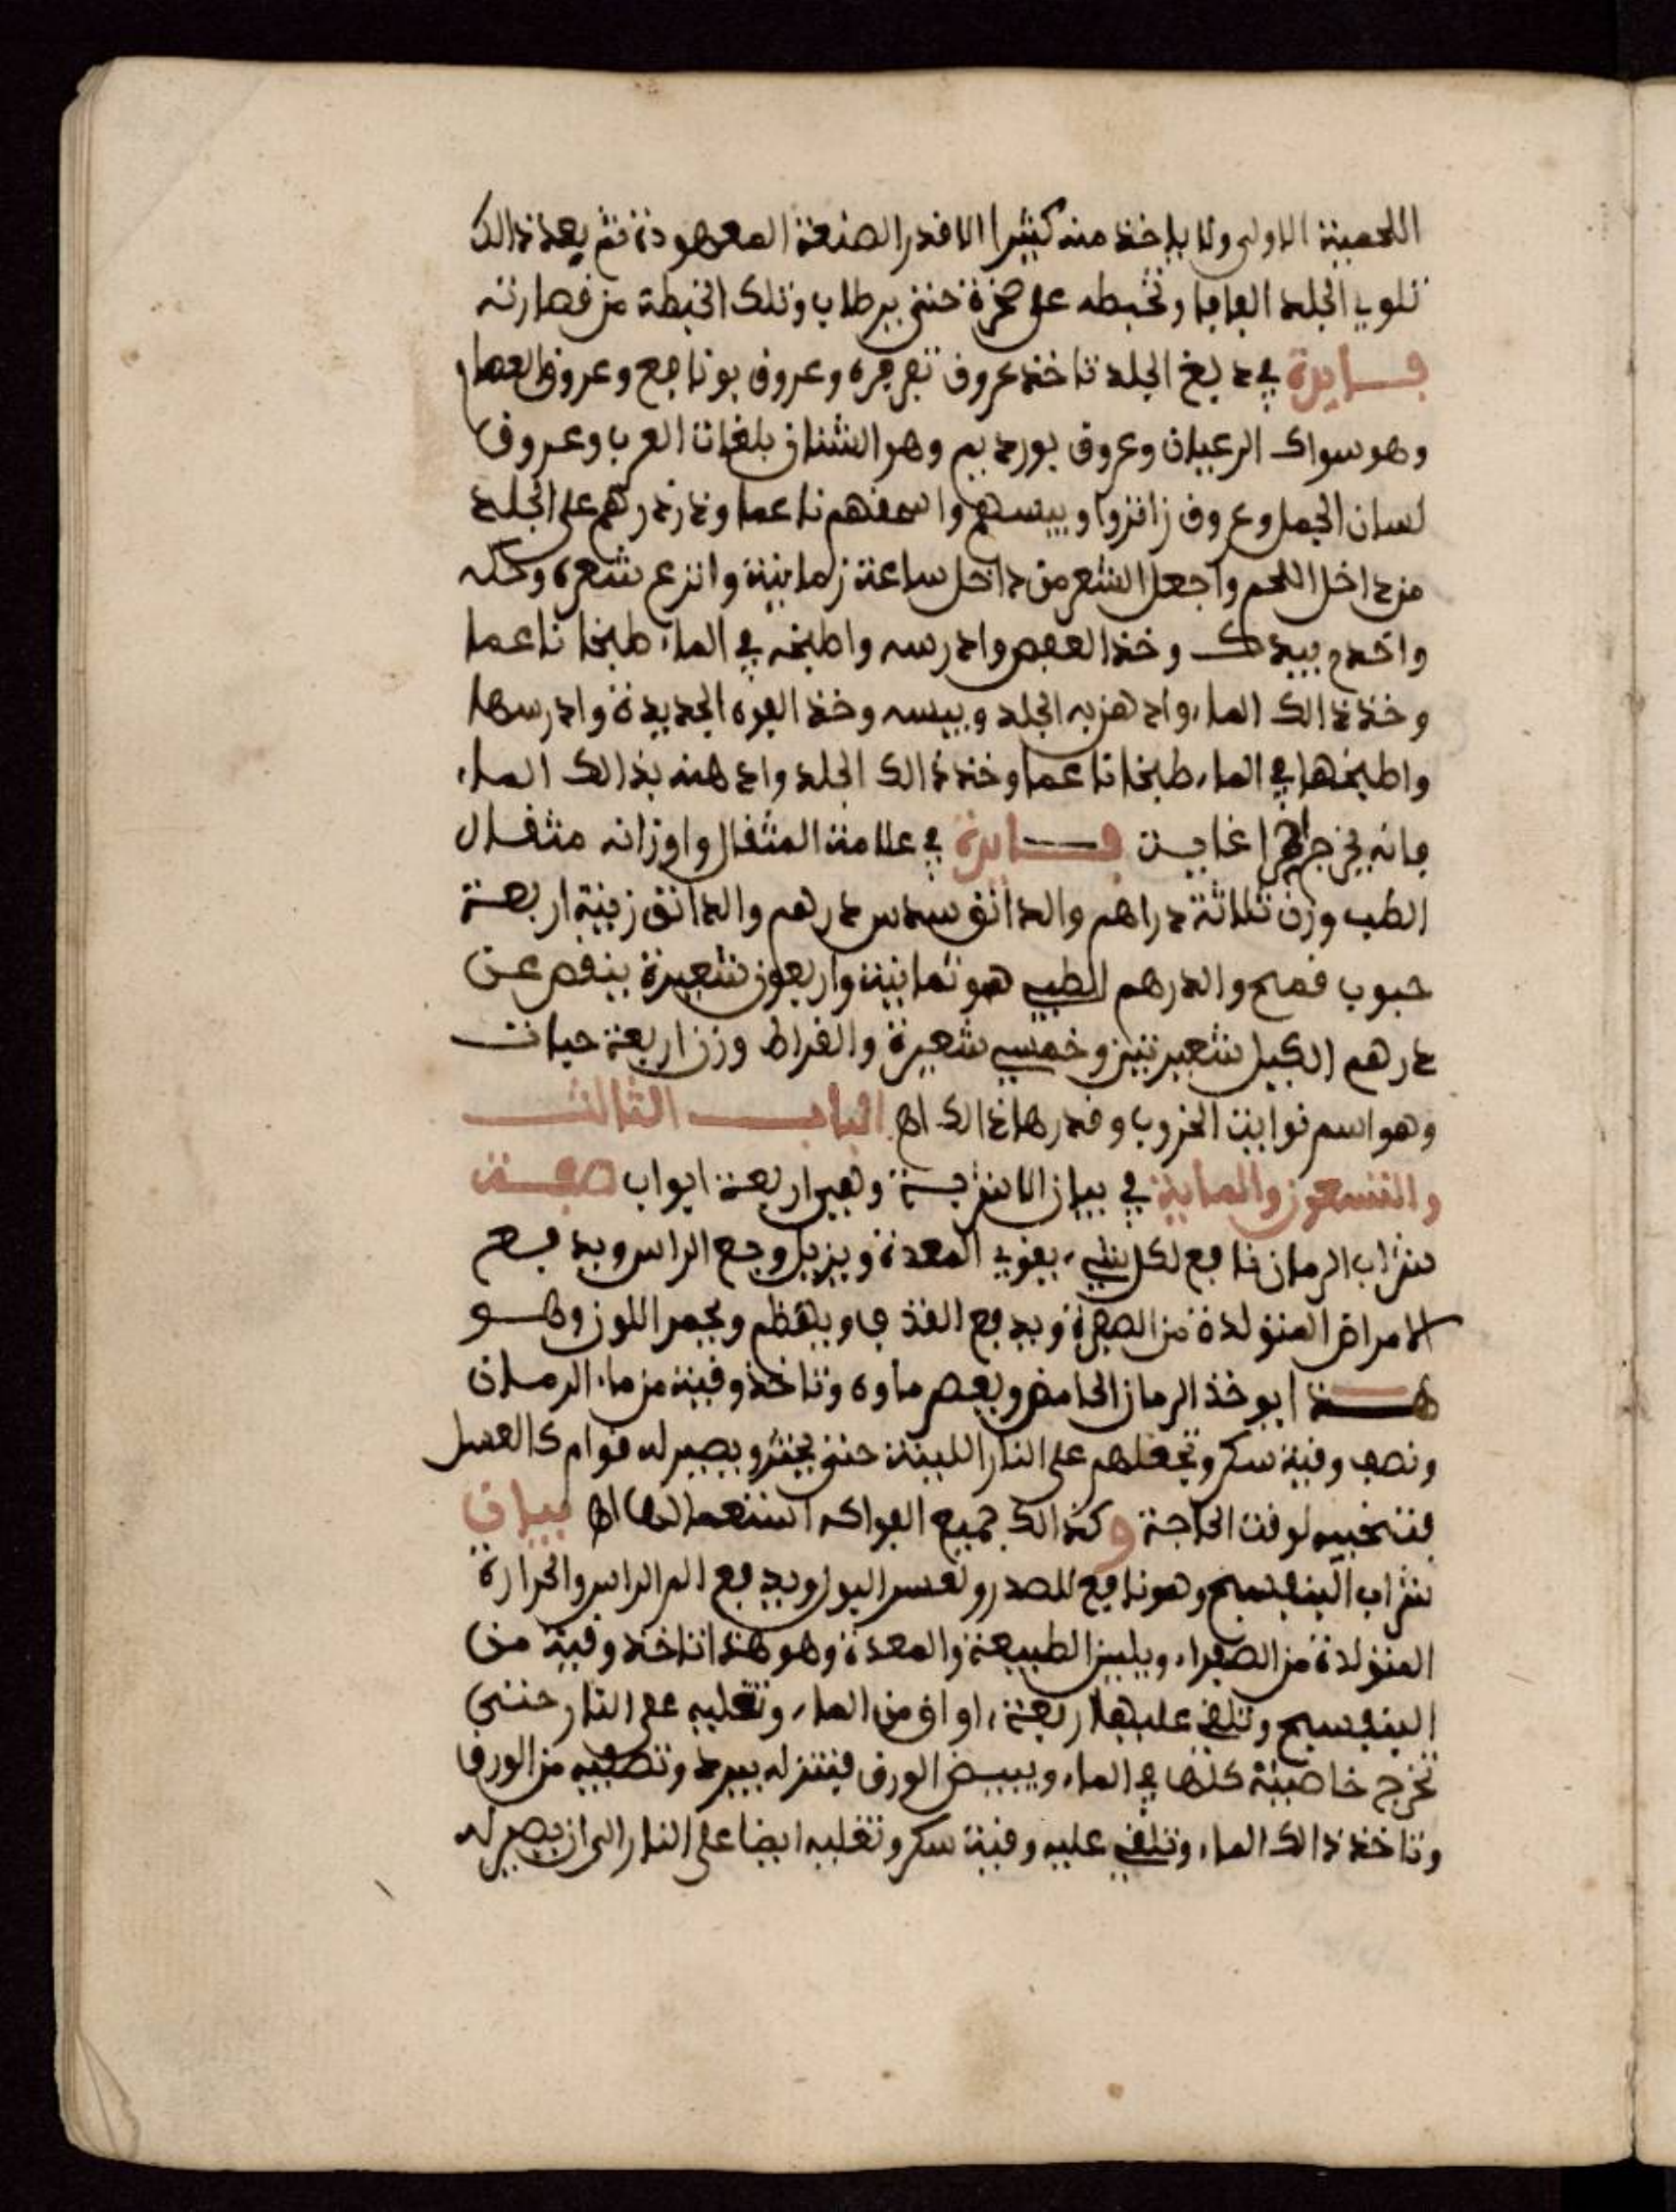 اللحمية الاولى ولا ياخذ منه كثيرا الا قدر الصنعة المعهودة ثم بعد ذالك
تلوي الجلد الفافا وتخبطه على صخرة حتى يرطاب وتلك الخبطة من قصارته
فايدة في دبغ الجلد تاخذ عروق تفرفره وعروق بونافع وعروق العصا
وهو سواك الرعيان وعروق بوردیم وهو الشنان بلغات العرب وعروق
لسان الجمل وعروق زانزوا ويبسهم واسحقهم ناعما وذرذرهم على الجلد
من داخل اللحم واجعل الشعر من داخل ساعة زمانية وانزع شعره وحكه
واخدم بيدك وخذ العفص وادرسه واطبخه في الماء طبخا ناعما
وخذ ذالك الماء وادهن به الجلد ويبسه وخذ الفوه الجديدة وادرسها
واطبخها في الماء طبخا ناعما وخذ ذالك الجلد وادهنه بذالك الماء
فانه يخرج احمرا غاية فايدة في علامة المثقال واوزانه مثقال
الطب وزن ثلاثة دراهم والدانق سدس درهم والدانق زينة اربعة
حبوب قمح والدرهم الطبي هو ثمانية واربعون شعيرة ينقص عن
درهم الكيل شعيرتين وخمسي شعيرة والقراط وزن اربعة حبات
وهو اسم نوايت الخروب وقدرها ذالك اه الباب الثالث
والتسعون والماية في بيان الاشربة وهي اربعة ابواب صفة
شراب الرمان نافع لكل شيء يقوي المعدة ويزيل وجع الراس ويدفع
الامراض المتولدة من الصفرة ويدفع القذف ويهظم ويحمر اللون وهو
هذا ايوخذ الرمان الحامض ويعصر ماوه وتاخذ وقية من ماء الرمان
ونصف وقية سكر وتجعلهم على النار اللينة حتى يخثر ويصير له قوام كالعسل
فتخبيه لوقت الحاجة وكذالك جميع الفواكه استعمالها اه بيان
شراب البنفسج وهو نافع للصدر ولعسر البول ويدفع الم الراس والحرارة
المتولدة من الصفراء ويلين الطبيعة والمعدة وهو هذا تاخذ وقية من
البنفسج وتلقي عليها اربعة اواق من الماء وتغليه على النار حتى
تخرج خاصيته كلها في الماء ويبيض الورق فتنزله يبرد وتصفيه من الورق
وتاخذ ذالك الماء وتلقي عليه وقية سكر وتغليه ايضا على النار الى ان يصير له